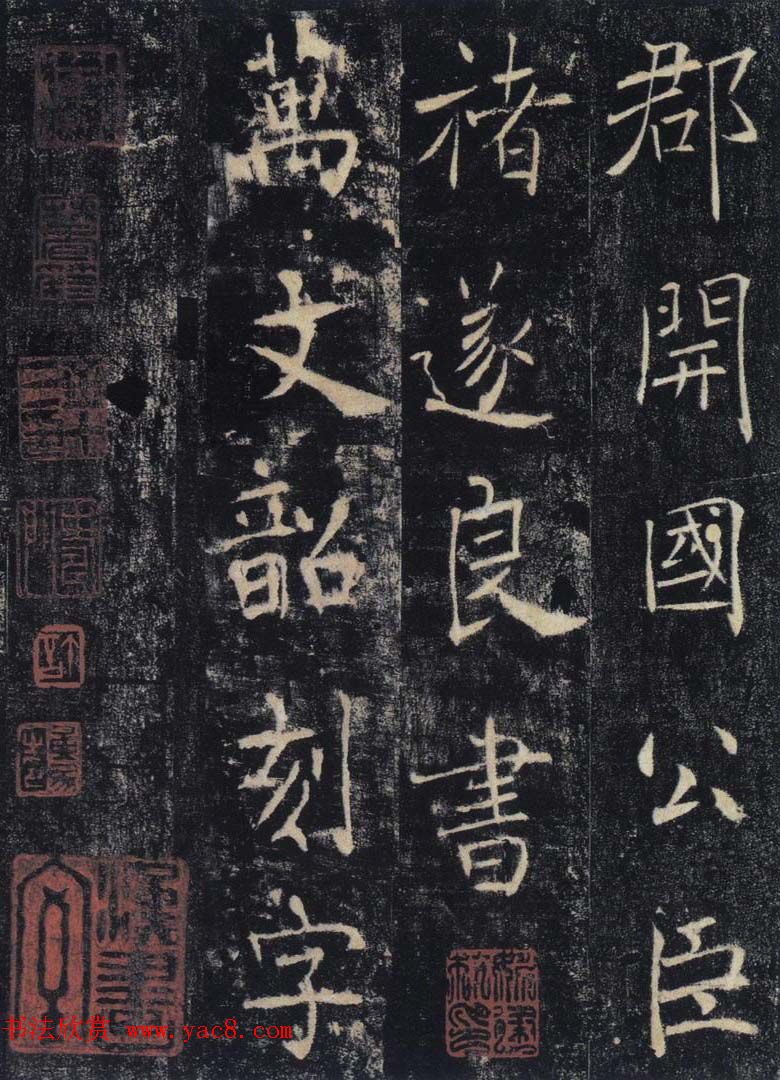 郡開國公臣
褚遂良書
萬文韶刻字
书法欣赏 www.yac8.com